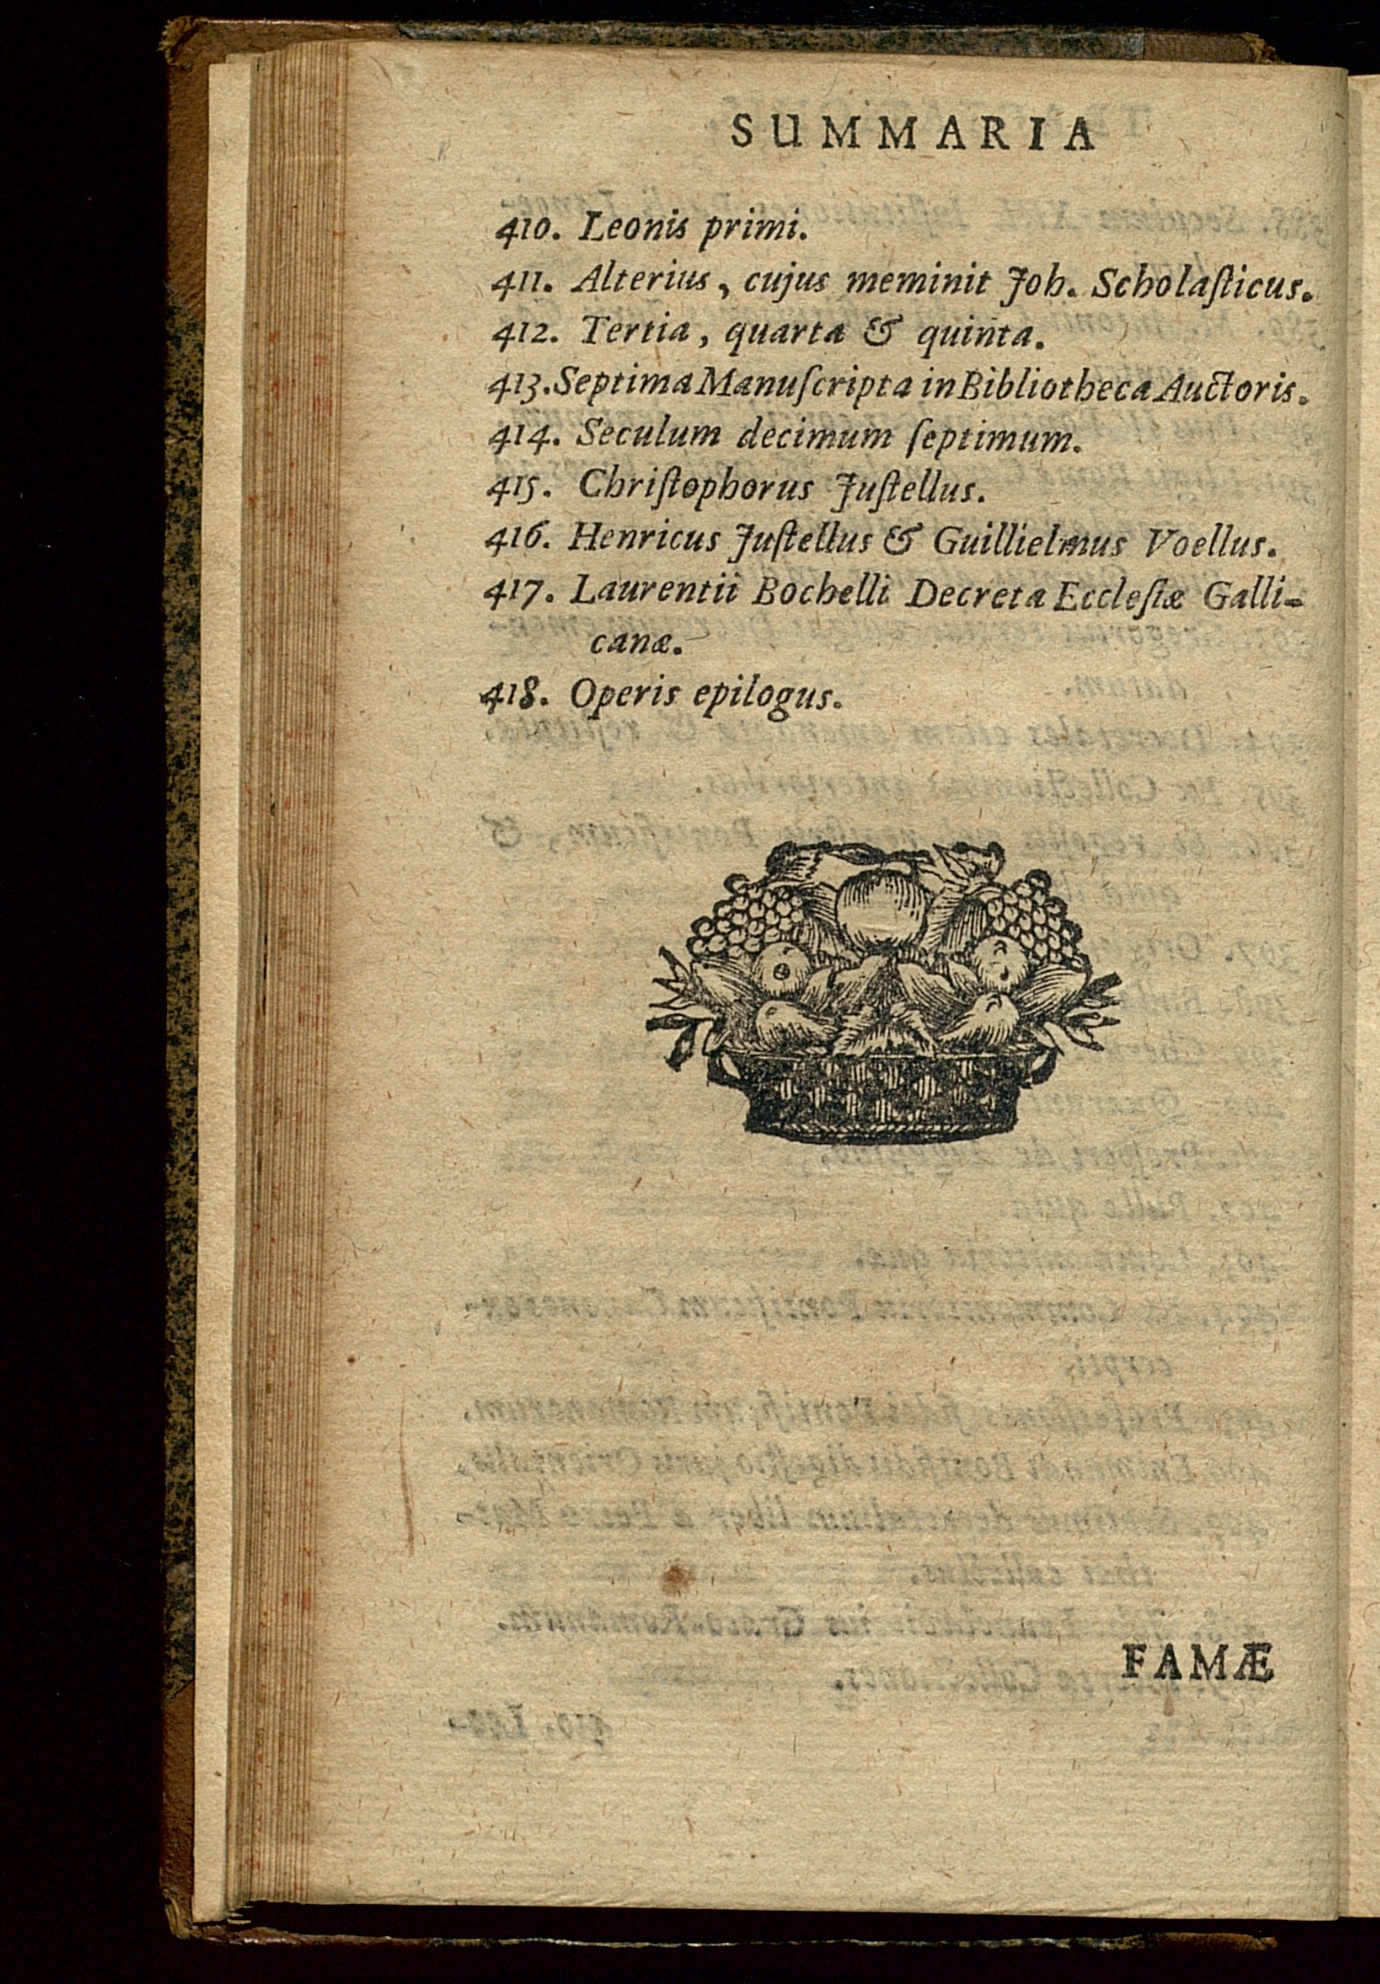 SUMMARIA
410. Leonis primi.
411. Alterius, cujus meminit Joh. Scholaſticus.
412. Tertia, quarta & quinta.
413. Septima Manuſcripta in Bibliotheca Auctoris.
414. Seculum decimum ſeptimum.
415. Chriſtophorus Juſtellus.
416. Henricus Juſtellus & Guillielmus Voellus.
417. Laurentii Bochelli Decreta Eccleſiæ Galli-
canæ.
418. Operis epilogus.
FAMÆ